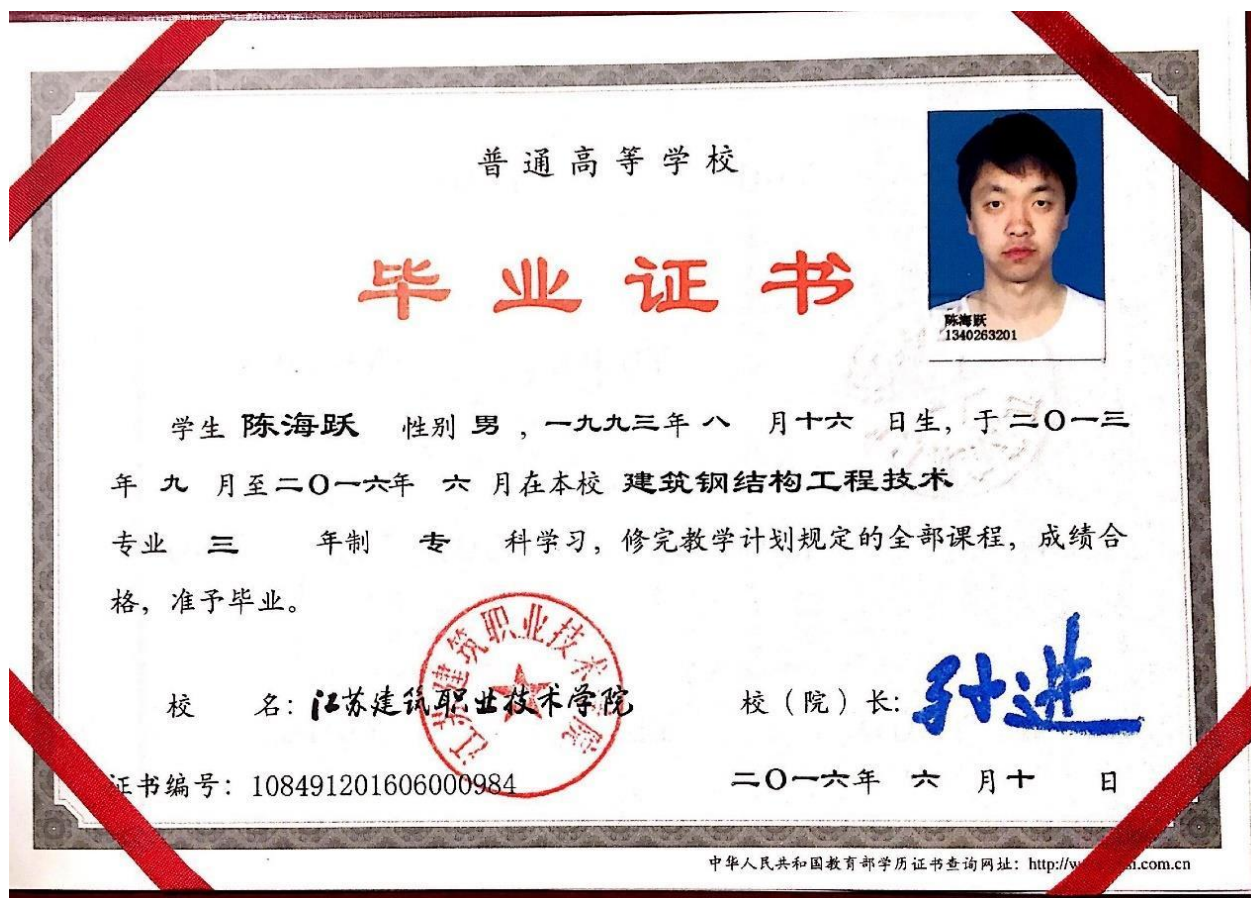 普通高等学校
毕业证书
陈海跃
1340263201
学生 陈海跃 性别 男 ，一九九三年 八 月十六 日生，于二〇一三
年 九 月至二〇一六年 六 月在本校 建筑钢结构工程技术
专业 三 年制 专 科学习，修完教学计划规定的全部课程，成绩合
格，准予毕业。
江苏建筑职业技术学院
校 名：江苏建筑职业技术学院
校（院）长：孙进
证书编号：108491201606000984
二〇一六年 六 月十 日
中华人民共和国教育部学历证书查询网址：http://w si.com.cn